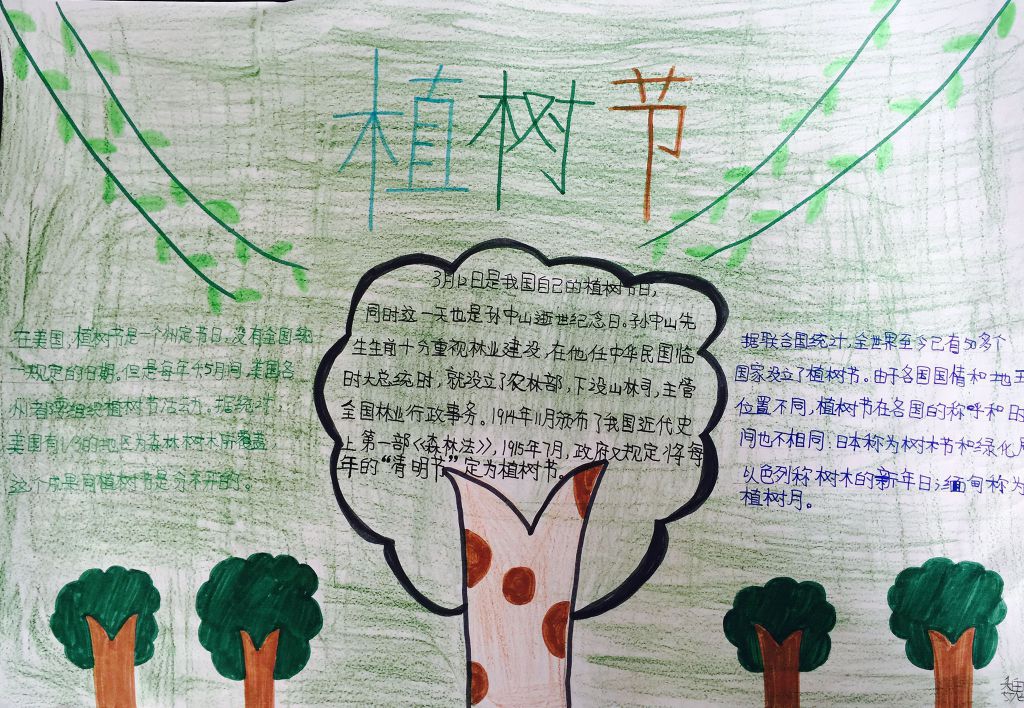 植树节
3月12日是我国自己的植树节日,
同时这一天也是孙中山逝世纪念日。孙中山先
生生前十分重视林业建设,在他任中华民国临
时大总统时,就没立了农林部,下没山林司,主管
全国林业行政事务。1914年11月颁布了我国近代史
上第一部《森林法》,1915年7月,政府又规定将每
年的“清明节”定为植树节。
在美国,植树节是一个州定节日,没有全国统
一规定的日期。但是每年4-5月间,美国各
州都组织植树节活动。据统计,
美国有1/3的地区为森林树木所覆盖
这个成果同植树节是分不开的。
据联合国统计,全世界至今已有50多个
国家没立了植树节。由于各国国情和地
位置不同,植树节在各国的称呼和日
间也不相同:日本称为树木节和绿化
以色列称树木的新年日;缅甸称为
植树月。
魏